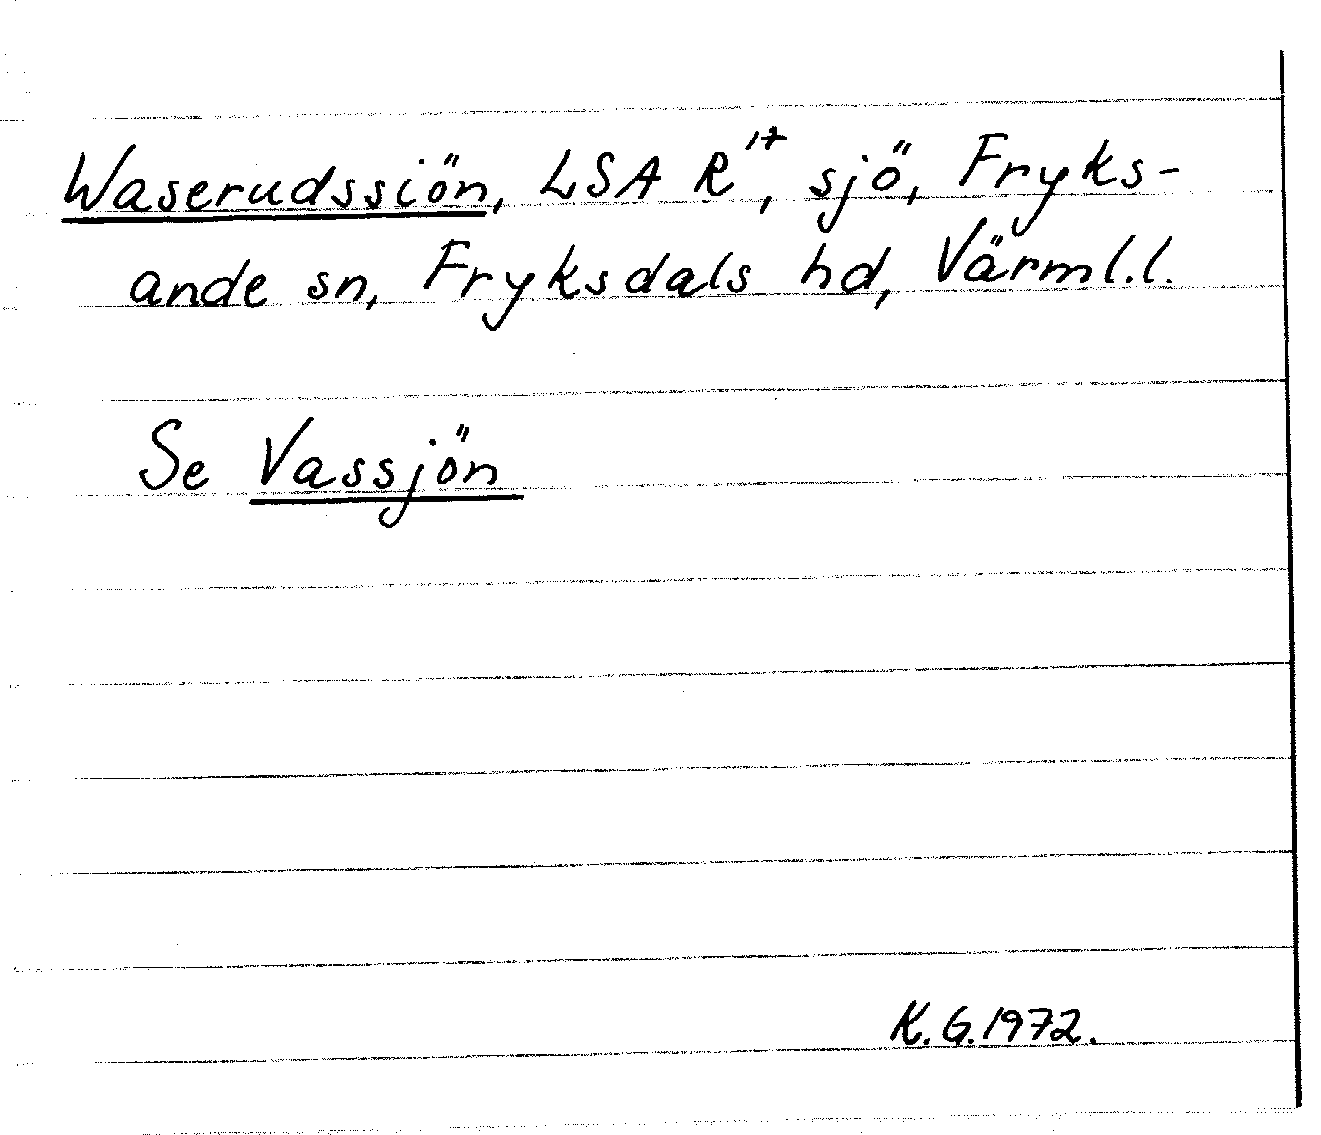 Waserudssiön, LSA R¹⁷, sjö, Fryks-
ande sn, Fryksdals hd, Värml.l.
Se Vassjön
K.G.1972.